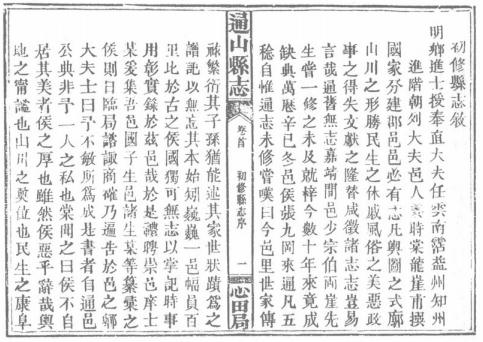 初修縣志敘
明鄉進士授奉直大夫任雲南霑益州知州
進階朝列大夫邑人時棠龍崖甫撰
國家分建郡邑邑必有志凡輿圖之式廓
山川之形勝民生之休戚風俗之美惡政
事之得失文獻之隆替咸徵諸志志豈易
言哉通舊無志嘉靖間邑少宗伯兩崖先
生嘗一修之未及就梓今數十年來竟成
缺典萬歷辛巳冬邑侯張九岡來通凡五
稔自惟通志未修嘗嘆曰今邑里世家傳
通山縣志
卷首
初修縣志序
一
心田局
祿繁衍其子孫猶能述其家世狀蹟為之
譜記以無忘其本始矧巍巍一邑幅員百
里比於古之侯國獨可無志以掌記時事
用彰實錄於茲邑哉於是禮聘崇邑庠士
某爰集吾邑國子生邑諸生某等纂彙之
侯則日臨局諮諏商確乃遍告於邑之鄉
大夫士曰予不敏所為成是書者自通邑
公典非予一人之私也棠聞之曰侯不自
居其美者侯之厚也雖然侯惡乎辭哉輿
地之甯謐也山川之奠位也民生之康阜